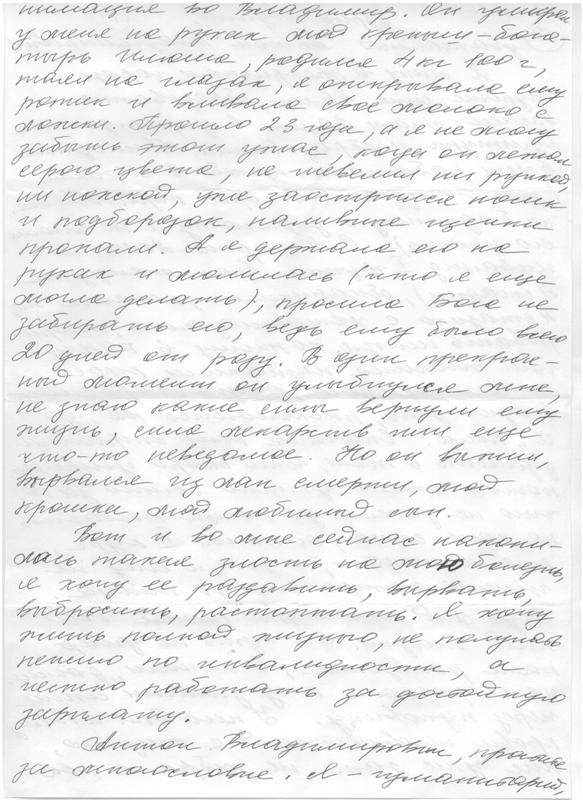 нимация во Владимир. Он умирал
у меня на руках мой крепыш-бога-
тырь Илюша, родился 4 кг 100 г,
таял на глазах, я открывала ему
ротик и вливала своё молоко с
ложки. Прошло 23 года, а я не могу
забыть этот ужас, когда он лежал
серого цвета, не шевелил ни ручкой,
ни ножкой, уже заострился носик
и подбородок, наливные щёчки
пропали. А я держала его на
руках и молилась (что я ещё
могла делать), просила Бога не
забирать его, ведь ему было всего
20 дней от роду. В один прекрас-
ный момент он улыбнулся мне,
не знаю какие силы вернули ему
жизнь, сила лекарств или еще
что-то неведомое. Но он выжил,
вырвался из лап смерти, мой
крошка, мой любимый сын.
Вот и во мне сейчас накопи-
лась такая злость на мою болезнь,
я хочу ее раздавить, вырвать,
выбросить, растоптать. Я хочу
жить полной жизнью, не получать
пенсию по инвалидности, а
честно работать за достойную
зарплату.
Антон Владимирович, простите
за многословие. Я - гуманитарий,